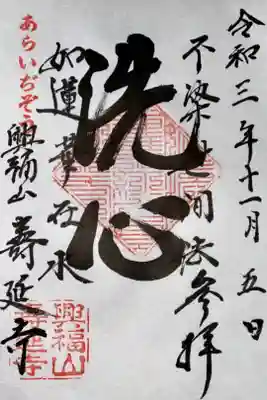 令和三年十一月五日
参拝
不染世间法
洗心
如蓮華在水
あらいぢぞう
興福山
壽延寺
興福山
壽延寺